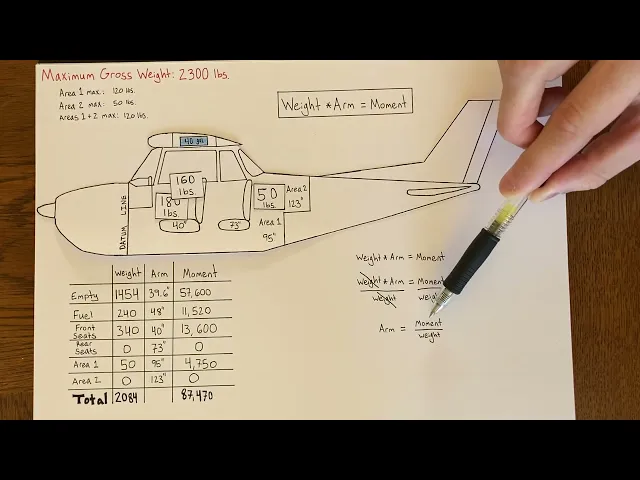 Maximum Gross Weight: 2300 lbs.
Area 1 max: 120 lbs.
Area 2 max: 50 lbs.
Areas 1+2 max: 120 lbs.
Weight * Arm = Moment
40 gal
160
lbs.
180
lbs.
40"
73"
50
lbs.
Area 2
123"
Area 1
95"
DATUM LINE
Weight Arm Moment
Empty 1454 39.6" 57,600
Fuel 240 48" 11,520
Front Seats 340 40" 13,600
Rear Seats 0 73" 0
Area 1 50 95" 4,750
Area 2 0 123" 0
Total 2084 87,470
Weight * Arm = Moment
Weight * Arm = Moment
Weight Weight
Arm = Moment
Weight